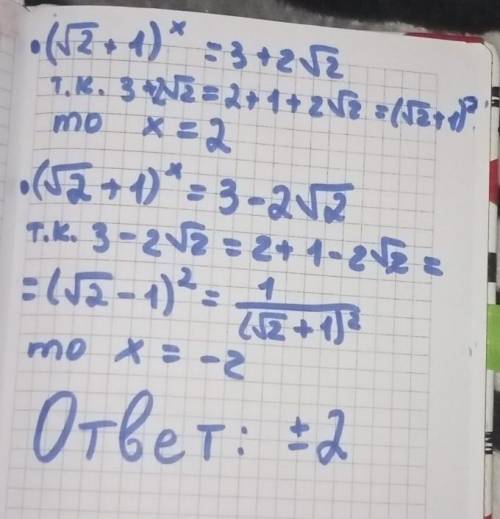 •(√2 + 1)^x = 3 + 2√2
т.к. 3 + 2√2 = 2 + 1 + 2√2 = (√2 + 1)^2
то x = 2
•(√2 + 1)^x = 3 - 2√2
т.к. 3 - 2√2 = 2 + 1 - 2√2 =
= (√2 - 1)^2 = 1/(√2 + 1)^2
то x = -2
Ответ: ±2